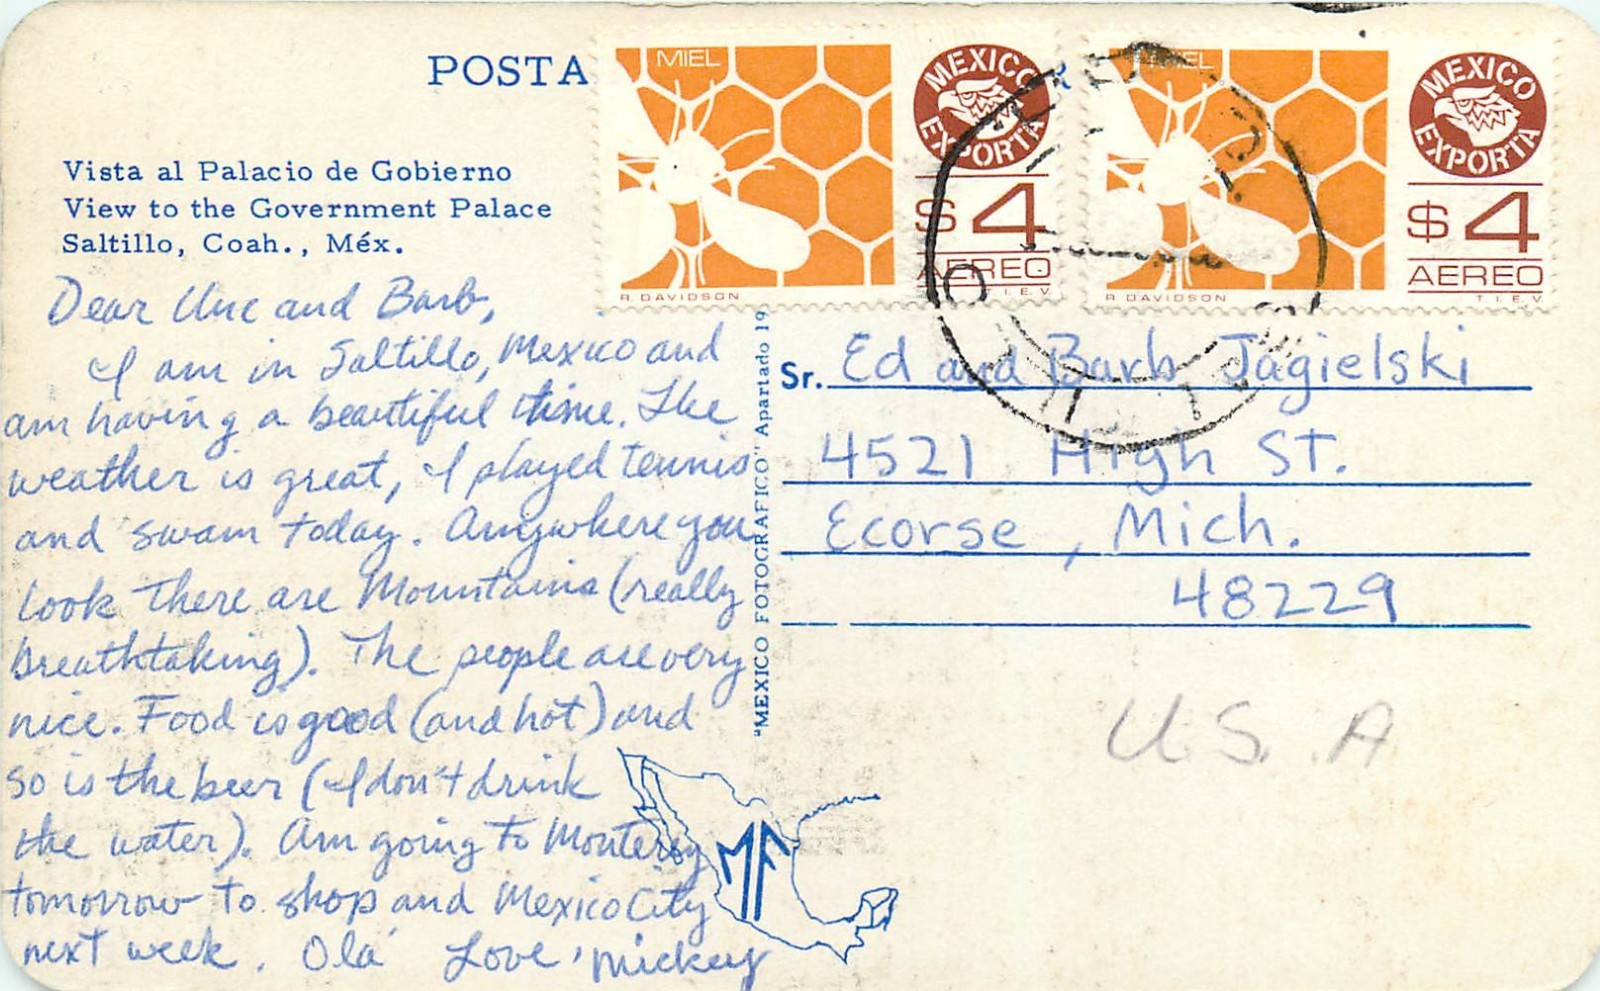 POSTA
MIEL
MEXICO
EXPORTA
$4
AEREO
R. DAVIDSON
T.I.E.V.
MIEL
MEXICO
EXPORTA
$4
AEREO
R. DAVIDSON
T.I.E.V.
Vista al Palacio de Gobierno
View to the Government Palace
Saltillo, Coah., Méx.
Dear Unc and Barb,
I am in Saltillo, Mexico and
am having a beautiful time. The
weather is great, I played tennis
and swam today. Anywhere you
look there are Mountains (really
breathtaking). The people are very
nice. Food is good (and hot) and
so is the beer (I don't drink
the water). Am going to Monterey
tomorrow to shop and Mexico City
next week. Olá Love, Mickey
"MEXICO FOTOGRAFICO" Apartado 19
MF
Sr. Ed and Barb Jagielski
4521 High St.
Ecorse, Mich.
48229
U.S.A